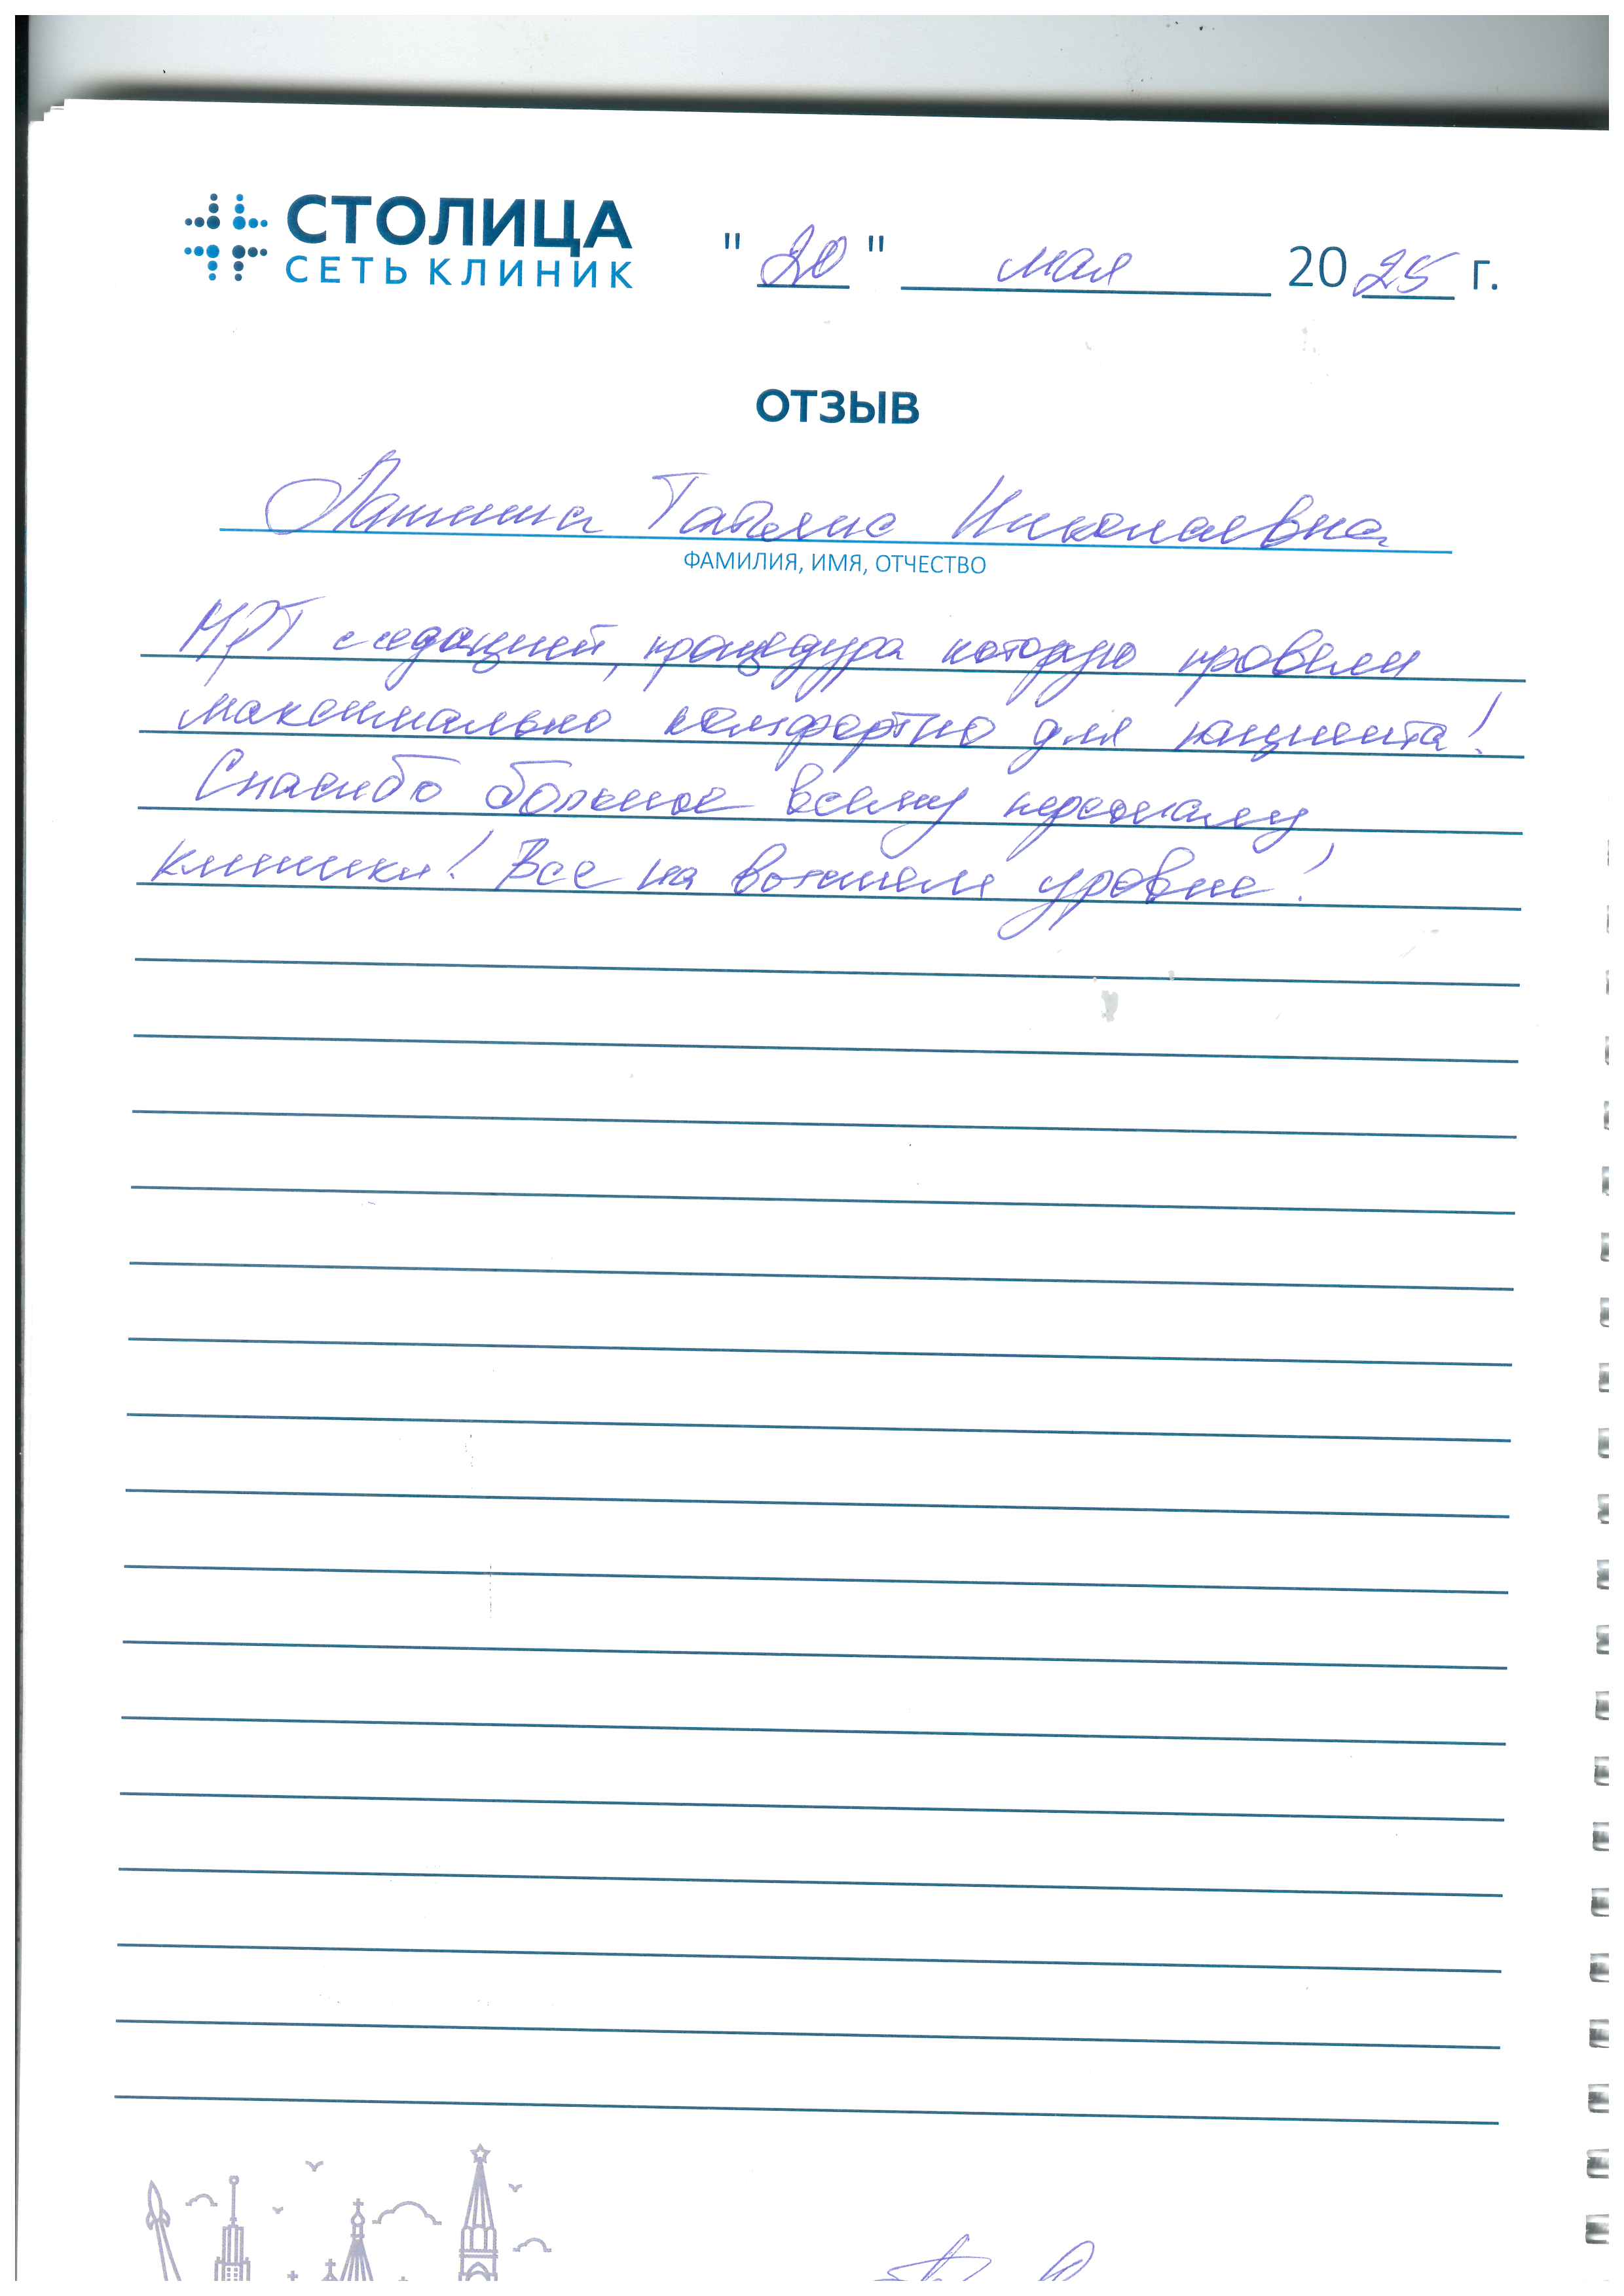 СТОЛИЦА
СЕТЬ КЛИНИК
"20" мая 2025 г.
ОТЗЫВ
Татьяна Николаевна
ФАМИЛИЯ, ИМЯ, ОТЧЕСТВО
МРТ с седацией, процедура которую провели
максимально комфортно для пациента!
Спасибо большое всему персоналу
клиники! Все на высшем уровне!